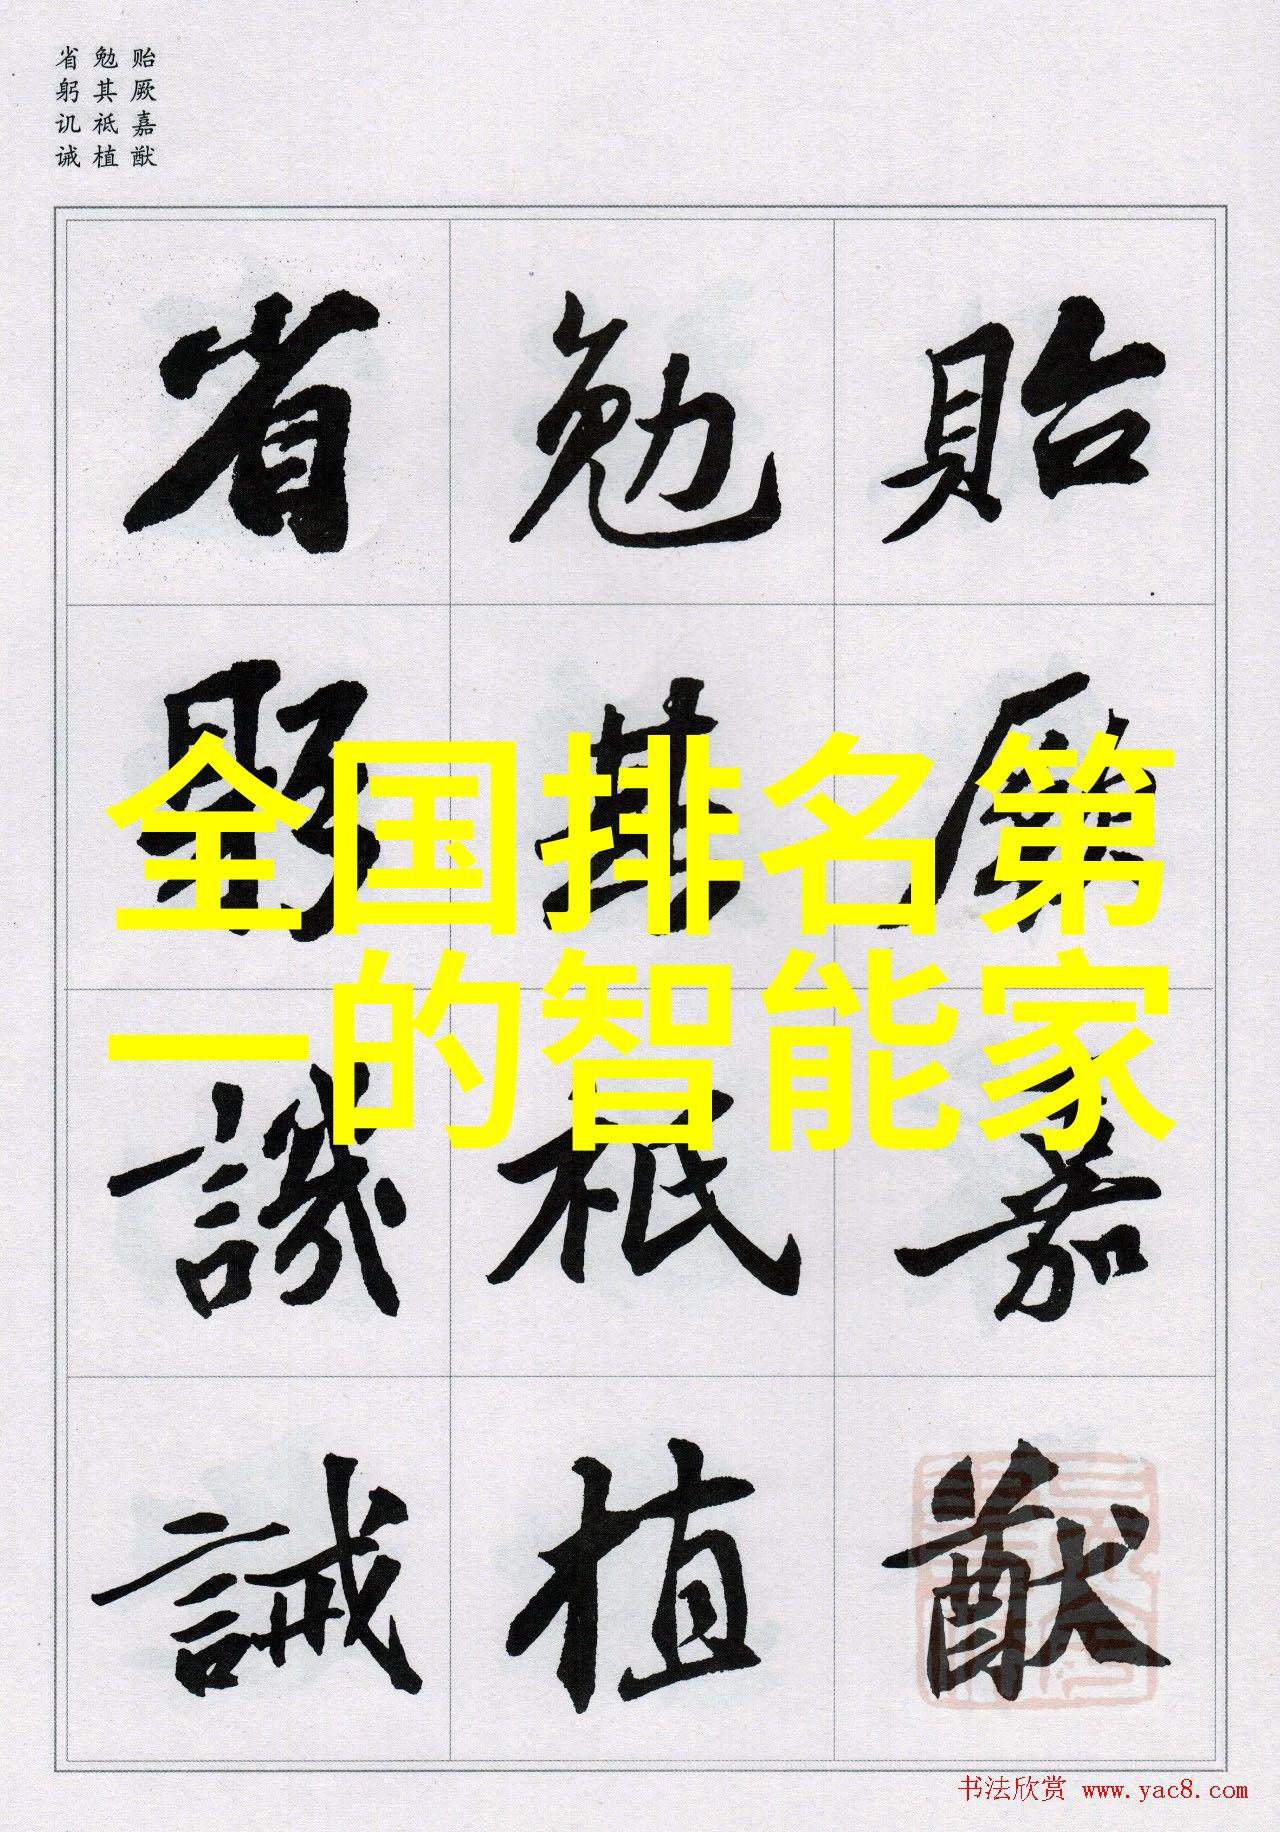 贻厥嘉猷
勉其祗植
省躬讥诫
貽厥嘉猷
勉其祗植
省躬譏誡
全国排名第
一的智能家
书法欣赏 www.yac8.com